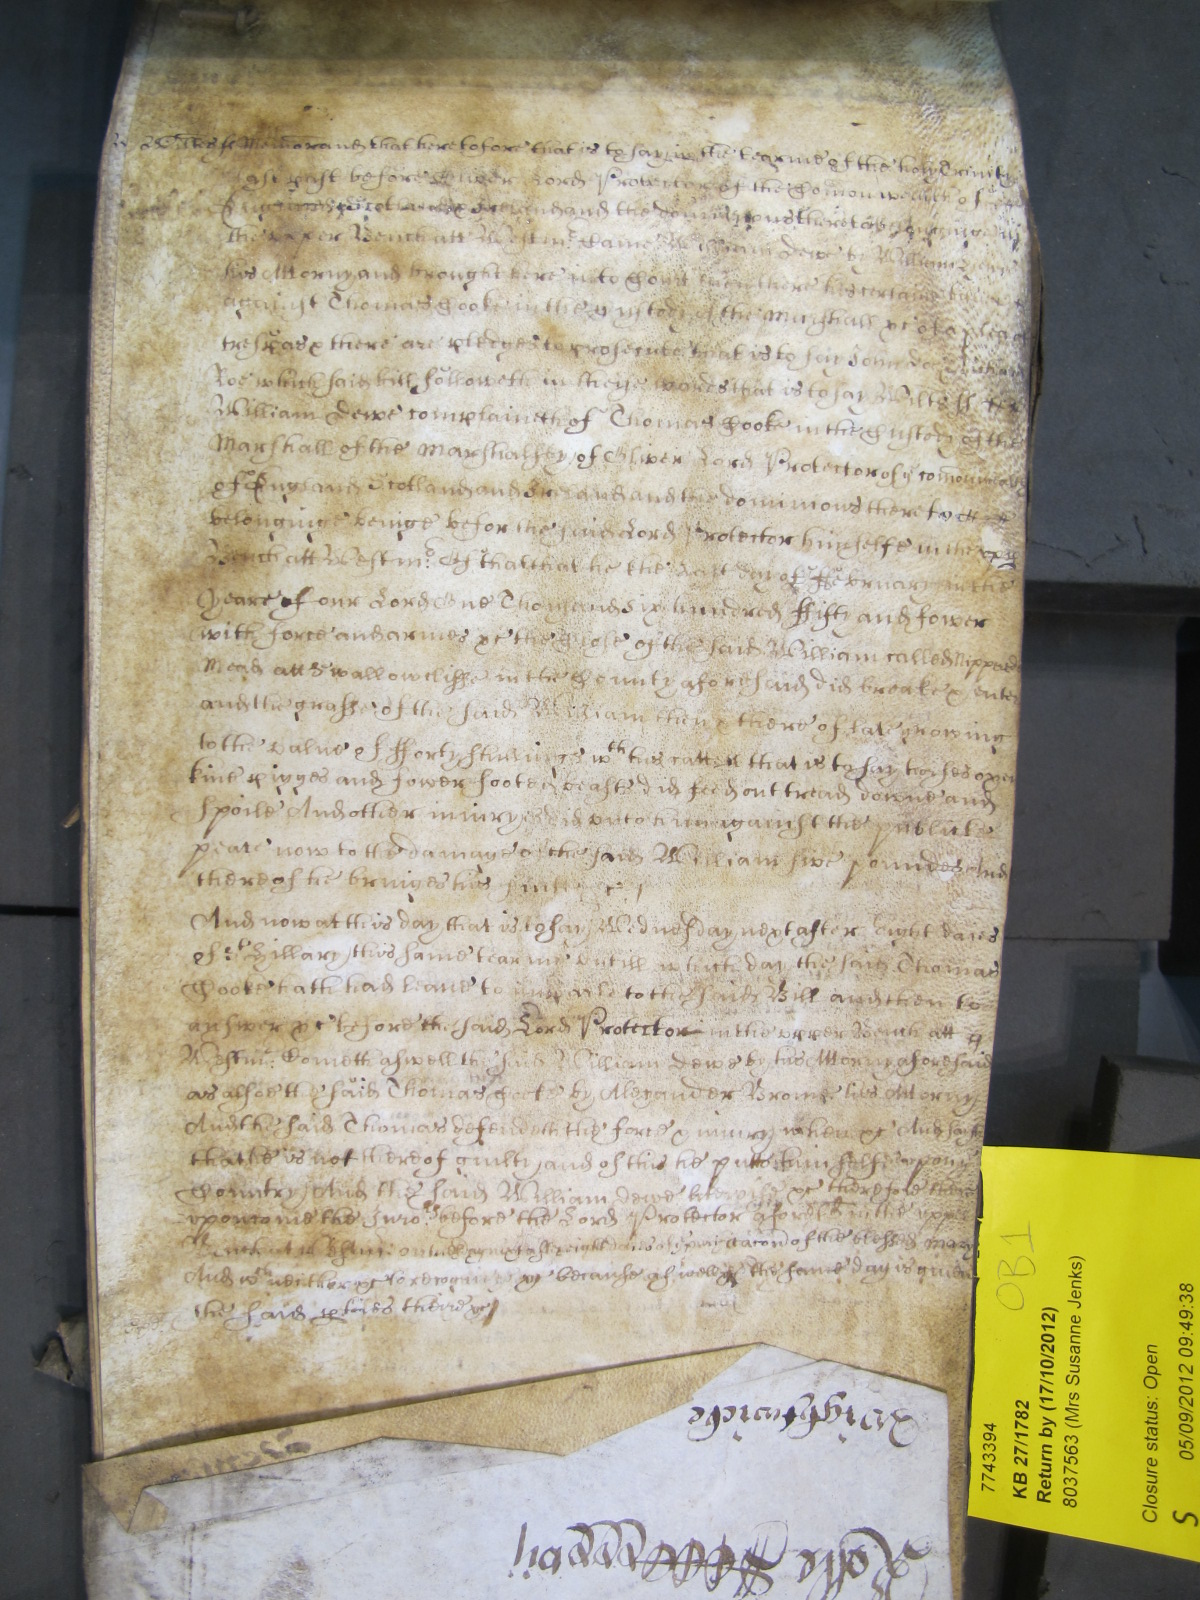 Wiltes ss Memorand that heretofore that is to say in the tearme of the holy Trinity
last past before Oliver Lord Protector of the Comonwealth of
England Scotland & Ireland and the dominions thereto belonginge in
the upper Bench att Westmr Came William Dewe by William
his Attorny and brought here into Court then there his certaine bill
against Thomas Cooke in the Custody of the Marshall &c of a plea of
trespas & there are pledges to prosecute that is to say John Doe
Roe which said bill followeth in theise wordes that is to say Wiltes ss
William Dewe complaineth of Thomas Cooke in the Custody of the
Marshall of the Marshalsey of Oliver Lord Protector of ye comonwealth
of England Scotland and Ireland and the dominions thereto
belonginge beinge before the said Lord Protector himselfe in the upper
Bench att Westmr Of that that he the last day of ffebruary in the
yeare of our Lord One Thousand Six hundred ffifty and fower
with force and armes &c the Close of the said William called
Mead att Swallowcliffe in the County aforesaid did breake & enter
and the grasse of the said William then & there of late growing
to the value of fforty shillings wth his cattell that is to say horses oxen
kine pigges and fower footed beasts did feed out tread downe and
spoile And other injuryes did unto him against the publick
peace now to the damage of the said William five poundes And
thereof he bringes his suite &c
And now at this day that is to say Wednesday next after eight daies
of St Hillary this same tearme untill which day the said Thomas
Cooke hath had leave to imparle to the said Bill and then to
answer &c before the said Lord Protector in the upper Bench att
Westmr Cometh aswell the said William Dewe by his Attorny aforesaid
as alsoe the said Thomas Cooke by Alexander Brome his Attorny
And the said Thomas defendeth the force & injury when &c And saith
that he is not thereof guilty and of this he putts himselfe upon ye
Country And the said William Dewe likewise &c therefore
upon come the Juro before the Lord Protector aforesd in the upper
Bench att Westmr on next after eight daies of the purificacon of the blessed Mary
And wch neither &c to recognize &c because aswell &c the same day is given
the said pties there &c
Wightwicke
Rolle
7743394
KB 27/1782
Return by (17/10/2012)
8037563 (Mrs Susanne Jenks)
OB1
Closure status: Open
05/09/2012 09:49:38
S